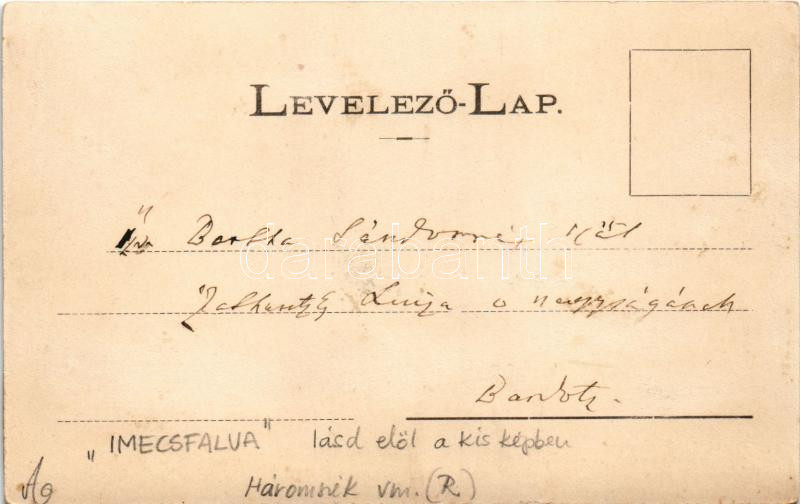 LEVELEZŐ-LAP.
Bartha Sándorné,
Luiza o nagyságának
Bardotz.
"IMECSFALVA" lásd elöl a kis képben
Háromszék vm. (R)
Ág
darabanth